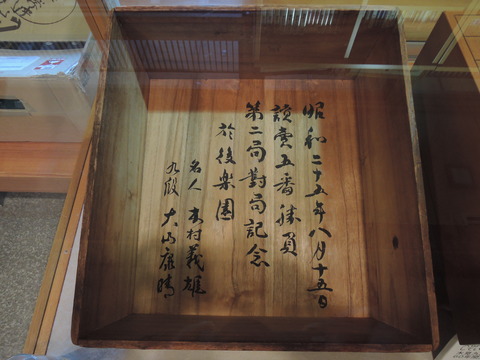 昭和二十五年八月十五日
讀賣五番勝負
第二局對局記念
於後楽園
名人 木村義雄
九段 大山康晴